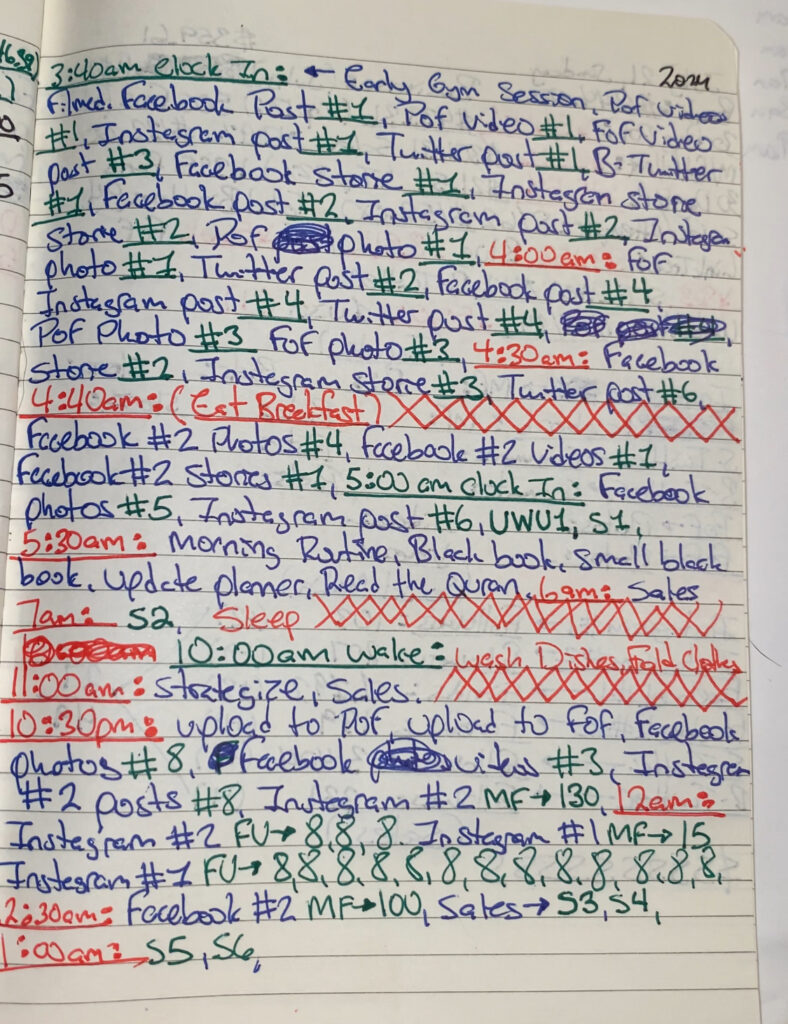 3:40am Clock In: ← Early Gym Session, Pof videos
filmed. Facebook Post #1, Pof video #1, Fof video
#1, Instagram post #1, Twitter post #1, B. Twitter
post #3, Facebook Storie #1, Instagram storie
#1, Facebook post #2, Instagram post #2, Instagram
Storie #2, Pof photo #1, 4:00am: Fof
photo #1, Twitter post #2, Facebook post #4,
Instagram post #4, Twitter post #4,
Pof Photo #3 Fof photo #3, 4:30am: Facebook
storie #2, Instagram storie #3, Twitter post #6,
4:40am: (Eat Breakfast)
Facebook #2 Photos #4, Facebook #2 Videos #1,
Facebook #2 Stories #1, 5:00am Clock In: Facebook
photos #5, Instagram post #6, UWU1, S1,
5:30am: Morning Routine, Black book, small black
book, update planner, Read the Quran, 6am: Sales
7am: S2, Sleep
10:00am Wake: Wash Dishes, Fold clothes
11:00am: Strategize, Sales.
10:30pm: upload to Pof, upload to Fof, Facebook
photos #8, Facebook videos #3, Instagram
#2 posts #8, Instagram #2 MF→130, 12am:
Instagram #2 FU→ 8,8,8. Instagram #1 MF→15
Instagram #1 FU→ 8,8,8,8,8,8,8,8,8,8,8,8,8,
2:30am: Facebook #2 MF→100, Sales→ S3, S4,
1:00am: S5, S6,